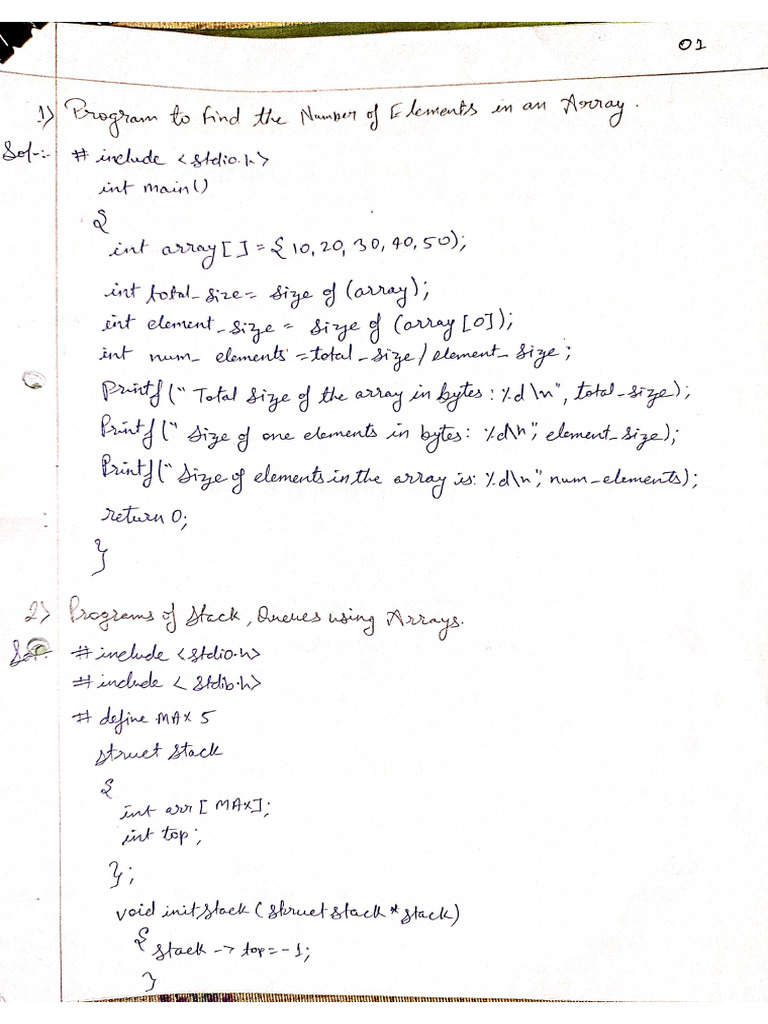 01
1) Program to find the Number of Elements in an Array.
Sol-:- # include <stdio.h>
int main()
{
int array[] = { 10, 20, 30, 40, 50);
int total_size = size of (array);
int element_size = size of (array [0]);
int num_elements = total_size / element_size;
Printf(" Total size of the array in bytes : %d \n", total_size);
Printf(" Size of one elements in bytes: %d\n", element_size);
Printf(" Size of elements in the array is: %d\n", num_elements);
return 0;
}
2) Programs of Stack, Queues using Arrays.
Sol:- # include <stdio.h>
# include < stdib.h>
# define MAX 5
struct stack
{
int arr [ MAX];
int top;
};
void initstack (struct stack * stack)
{ stack -> top = -1;
}